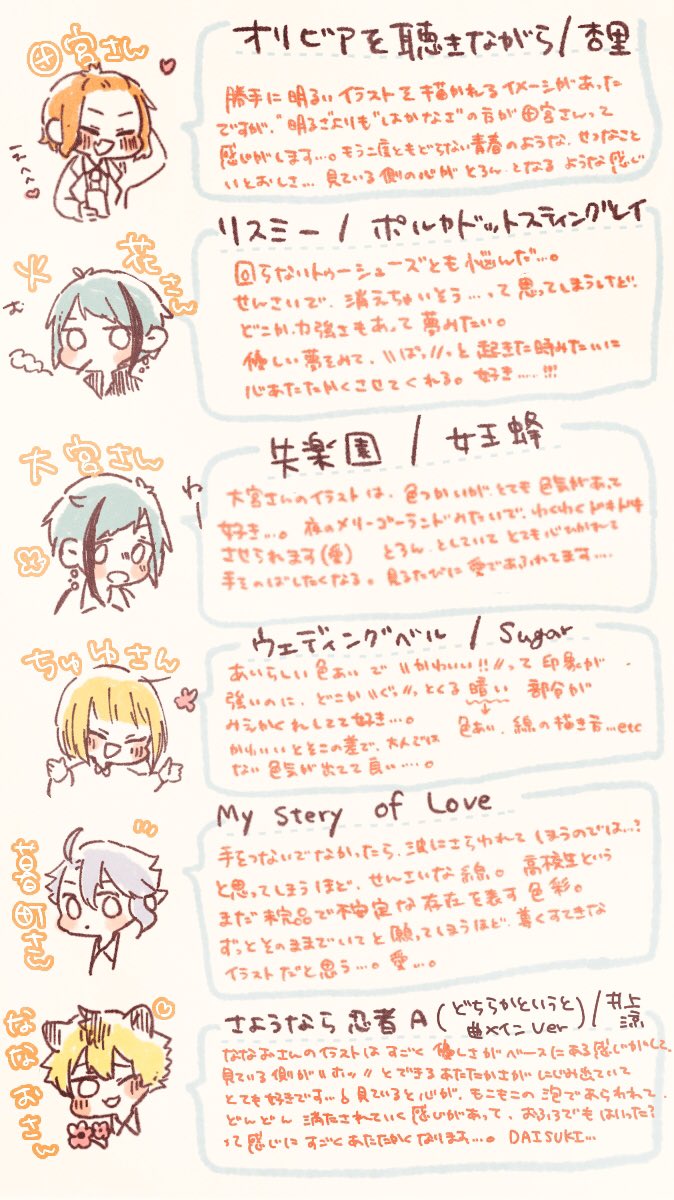 田宮さん
オリビアを聴きながら/杏里
えへへ
勝手に明るいイラストを描かれるイメージがあった
ですが、"明るさよりも"はかなさ"の方が田宮さんって
感じがします…。もう二度ともどらない青春のような、せつなこと
いとおしさ…見ている側の心がとろんとなるような感じ
火花さん
リスミー/ポルカドットスティングレイ
お
回らないトゥーシューズとも悩んだ…。
せんさいで、消えちゃいそう…って思ってしまうけど、
どこか力強さもあって夢みたい。
優しい夢をみて、"ぱっ"と起きた時みたいに
心あたたかくさせてくれる。好き……!!!
大宮さん
失楽園/女王蜂
わー
大宮さんのイラストは、色づかいがとても色気があって
好き…。夜のメリーゴーランドみたいで、わくわくドキドキ
させられます(愛) とろんとしていてとても心ひかれて
手をのばしたくなる。見るたびに愛であふれてます…
ちゅゆさん
ウェディングベル/Sugar
あいらしい色あいで"かわいい!!"って印象が
強いのに、どこか"ぐっ"とくる暗い部分が
みえかくれしてて好き…。
色あい、線の描き方…etc
かわいいとその差で、大人では
ない色気が出てて良い……。
さん
My Story of Love
手をつないでなかったら、波にさらわれてしまうのでは…?
と思ってしまうほど、せんさいな線。高校生という
まだ未完品で不安定な存在を表す色彩。
ずっとそのままでいてと願ってしまうほど、尊くすてきな
イラストだと思う…。愛…。
ななおさん
さようなら忍者A(どちらかというと曲メインver)/井上涼
ななおさんのイラストはすごく優しさがベースにある感じがして、
見ている側が"ホッ"とできるあたたかさがにじみ出ていて
とても好きです…!見ていると心が、もこもこの泡であらわれて、
どんどん満たされていく感じがあって、おふろでもはいった?
って感じにすごくあたたかくなります…。DAISUKI…